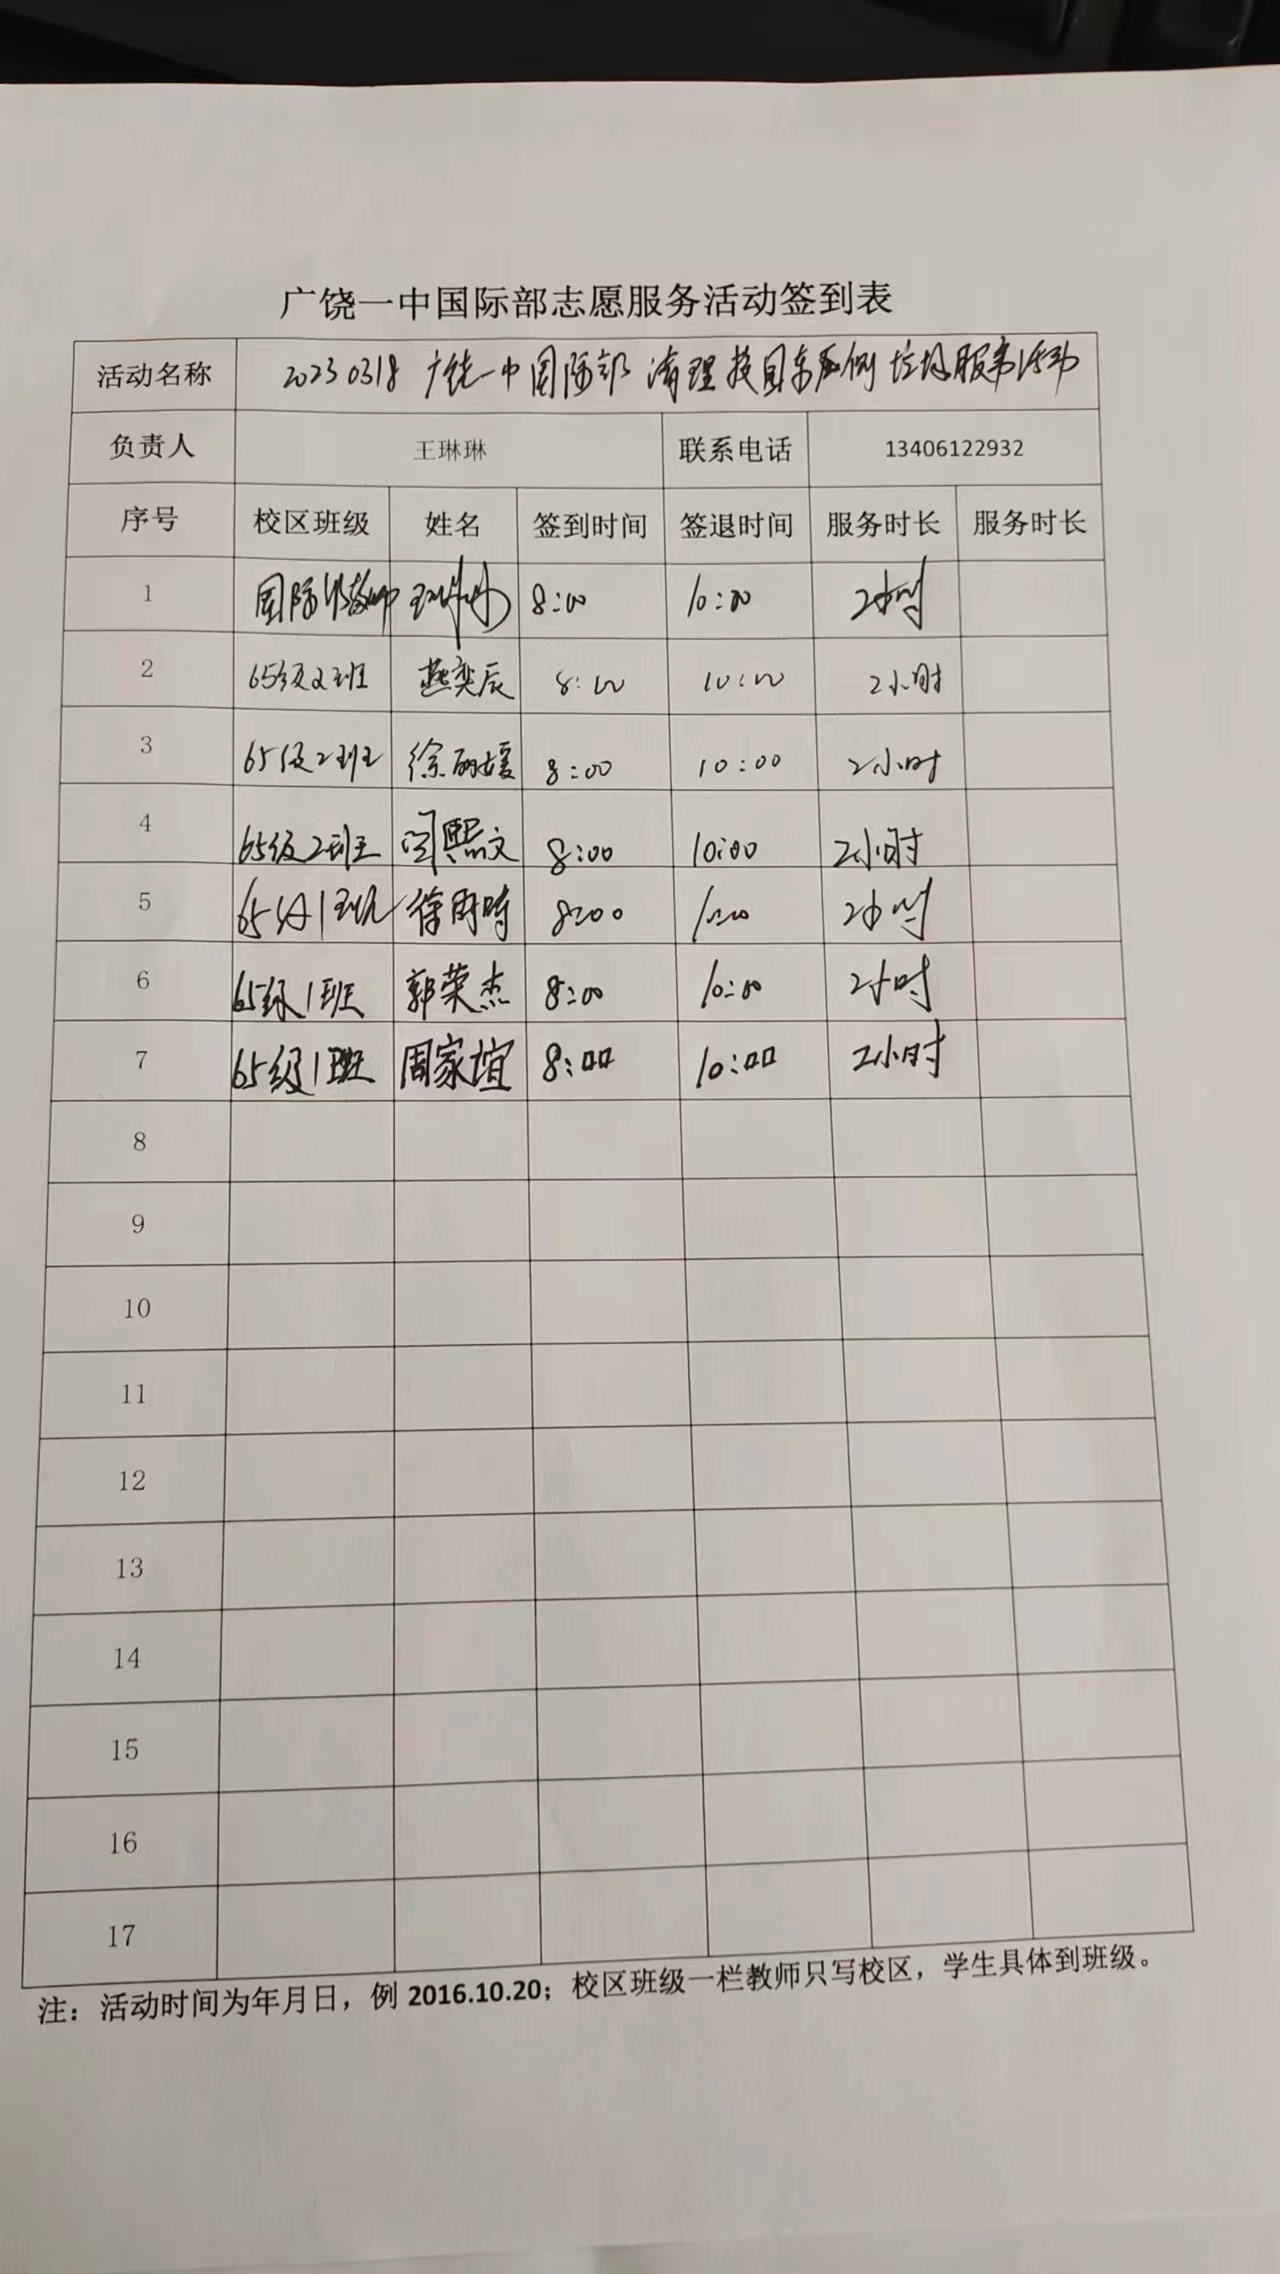 广饶一中国际部志愿服务活动签到表
活动名称 20230318 广饶一中国际部 清理校园东西侧垃圾服务活动
负责人 王琳琳 联系电话 13406122932
序号 校区班级 姓名 签到时间 签退时间 服务时长 服务时长
1 国际部教师 王琳琳 8:00 10:00 2小时
2 65级2班 燕奕辰 8:00 10:00 2小时
3 65级2班 徐丽媛 8:00 10:00 2小时
4 65级2班 闫熙文 8:00 10:00 2小时
5 65级1班 徐雨晴 8:00 10:00 2小时
6 65级1班 郭荣杰 8:00 10:00 2小时
7 65级1班 周家谊 8:00 10:00 2小时
8
9
10
11
12
13
14
15
16
17
注：活动时间为年月日，例 2016.10.20；校区班级一栏教师只写校区，学生具体到班级。